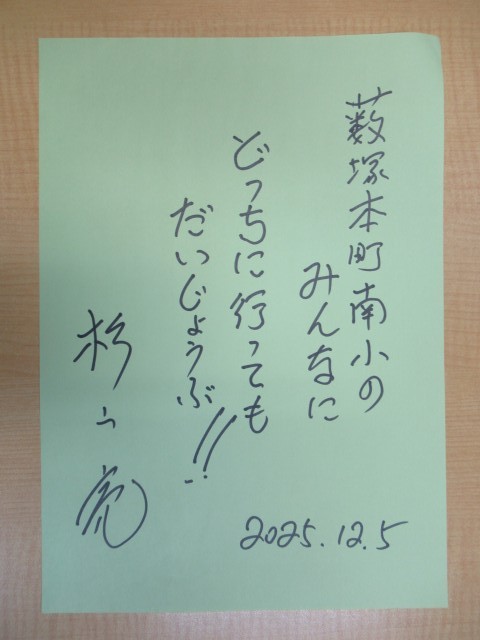 藪塚本町南小の
みんなに
どっちに行っても
だいじょうぶ!!
杉山亮
2025.12.5